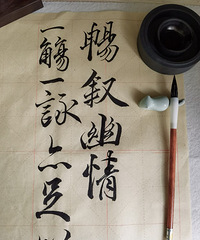 一觴一詠亦足以
暢叙幽情